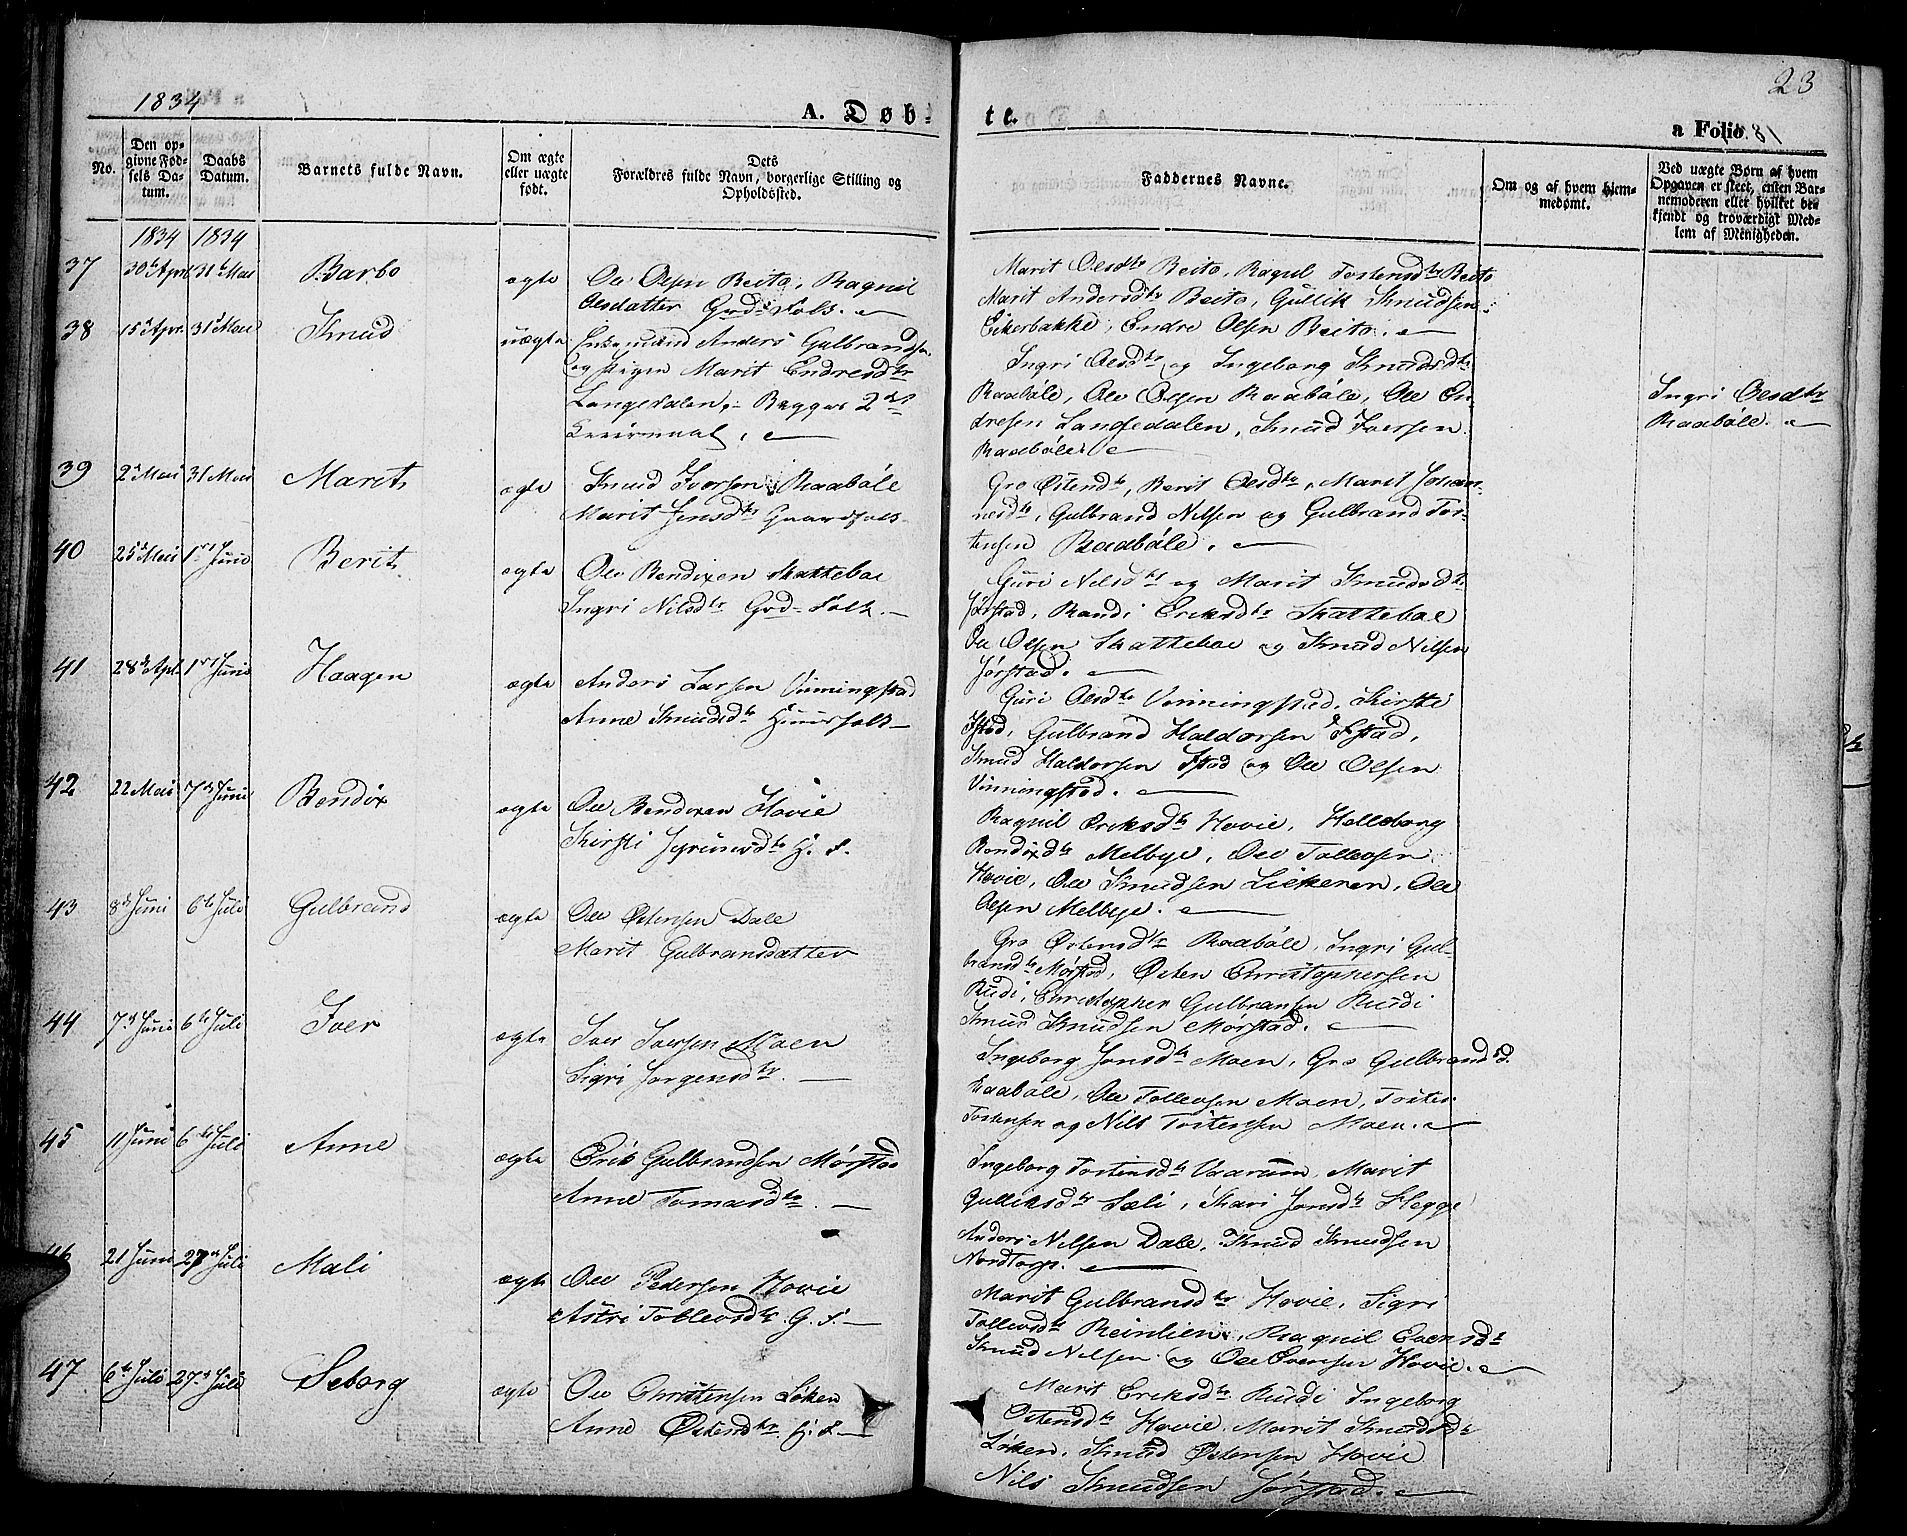 1834
23
A. Døb-
te.
a Folio
No.
Den op-
givne Fød-
sels Da-
tum.
Daabs
Datum.
Barnets fulde Navn.
Om ægte
eller uægte
født.
Dets
Forældres fulde Navn, borgerlige Stilling og
Opholdssted.
Faddernes Navne.
Om og af hvem hjem-
medømt.
Ved uægte Børn af hvem
Opgaven er skeet, enten Bar-
nemoderen eller hvilket be-
kjendt og troværdigt Med-
lem af Menigheden.
1834 1834
37 30te Apr 31te Mai Barbo ægte Ole Olsen Beito, Ragnil
Olesdatter Grd-Folk.
Marit Olesdtr Beito, Ragnil Tostensdtr Beito
Marit Andersdtr Beito, Gullik Knudsen
Eikerbakke, Endre Olsen Beito.
38 15de Apr. 31te Mai Knud uægte Enkemand Anders Gulbrandsen
og Pigen Marit Endresdtr
Langedalen, Begges 2det
Leiermaal.
Ingri Olesdtr og Ingeborg Knudsdtr
Raabøle, Ole Olsen Raabøle, Ole En-
dresen Langedalen, Knud Iversen
Raabøle.
Ingri Olesdtr
Raabøle.
39 2den Mai 31 Mai Marit ægte Knud Iversen Raabøle
Marit Jensdtr Gaardfolk
Gro Østensdtr, Berit Olesdtr, Marit Johan-
nesdtr, Gulbrand Nilsen og Gulbrand Tos-
tensen Raabøle.
40 25de Mai 1ste Juni Berit ægte Ole Bendixen Skatteboe
Ingri Nilsdtr Grd-Folk.
Guri Nilsdtr og Marit Knudsdtr
Jørstad, Randi Eriksdtr Skatteboe
Ole Olsen Skatteboe og Knud Nilsen
Jørstad.
41 28de Apl 1ste Juni Haagen ægte Anders Larsen Vinningstad
Anne Knudsdtr Huusfolk
Guri Olesdtr Vinningstad, Kirsti
Istad, Gulbrand Haldorsen Istad,
Knud Haldorsen Istad og Ole Olsen
Vinningstad.
42 22 Mai 7de Juni Bendix ægte Ole Bendixen Hovie
Kirsti H. F.
Ragnil Eriksdtr Hovie, Helleborg
Bendixdtr Melbye, Ole Tollevsen
Hovie, Ole Knudsen Liekeren, Ole
Olsen Melbye.
43 8de Juni 6te Juli Gulbrand ægte Ole Østensen Dale
Marit Gulbransdatter
Gro Østensdtr Raabøle, Ingri Gul-
bransdtr Mørstad, Østen Christophersen
Rudi, Christopher Gulbransen Rudi
Knud Knudsen Mørstad.
44 7de Juni 6te Juli Iver ægte Iver Iversen Moen
Sigri Jørgensdtr.
Ingeborg Jonsdtr Moen, Gro Gulbrandsd.
Raabøle, Ole Tollevsen Moen, Tosten
Tostensen og Nils Tostensen Moen.
45 11 Juni 6te Juli Anne ægte Erik Gulbrandsen Mørstad
Anne Tomasdtr.
Ingeborg Tostensdtr Vaarum, Marit
Gulliksdtr Sæli, Kari Jonsdtr Hegge
Anders Nilsen Dale, Knud Knudsen
Nordtorp.
46 21 Juni 27de Juli Mali ægte Ole Pedersen Hovie
Astri Tollevsdtr G. F.
Marit Gulbransdtr Hovie, Sigri
Tollevsdtr Reinlien, Ragnil Evensdtr
Knud Nilsen og Ole Evensen Hovie.
47 6te Juli 27de Juli Seborg ægte Ole Christensen Løken
Anne Østensdtr H. F.
Marit Eriksdtr Rudi Ingeborg
Østensdtr Hovie, Marit Knudsdtr
Løken. Knud Østensen Hovie
Nils Knudsen Jørstad.